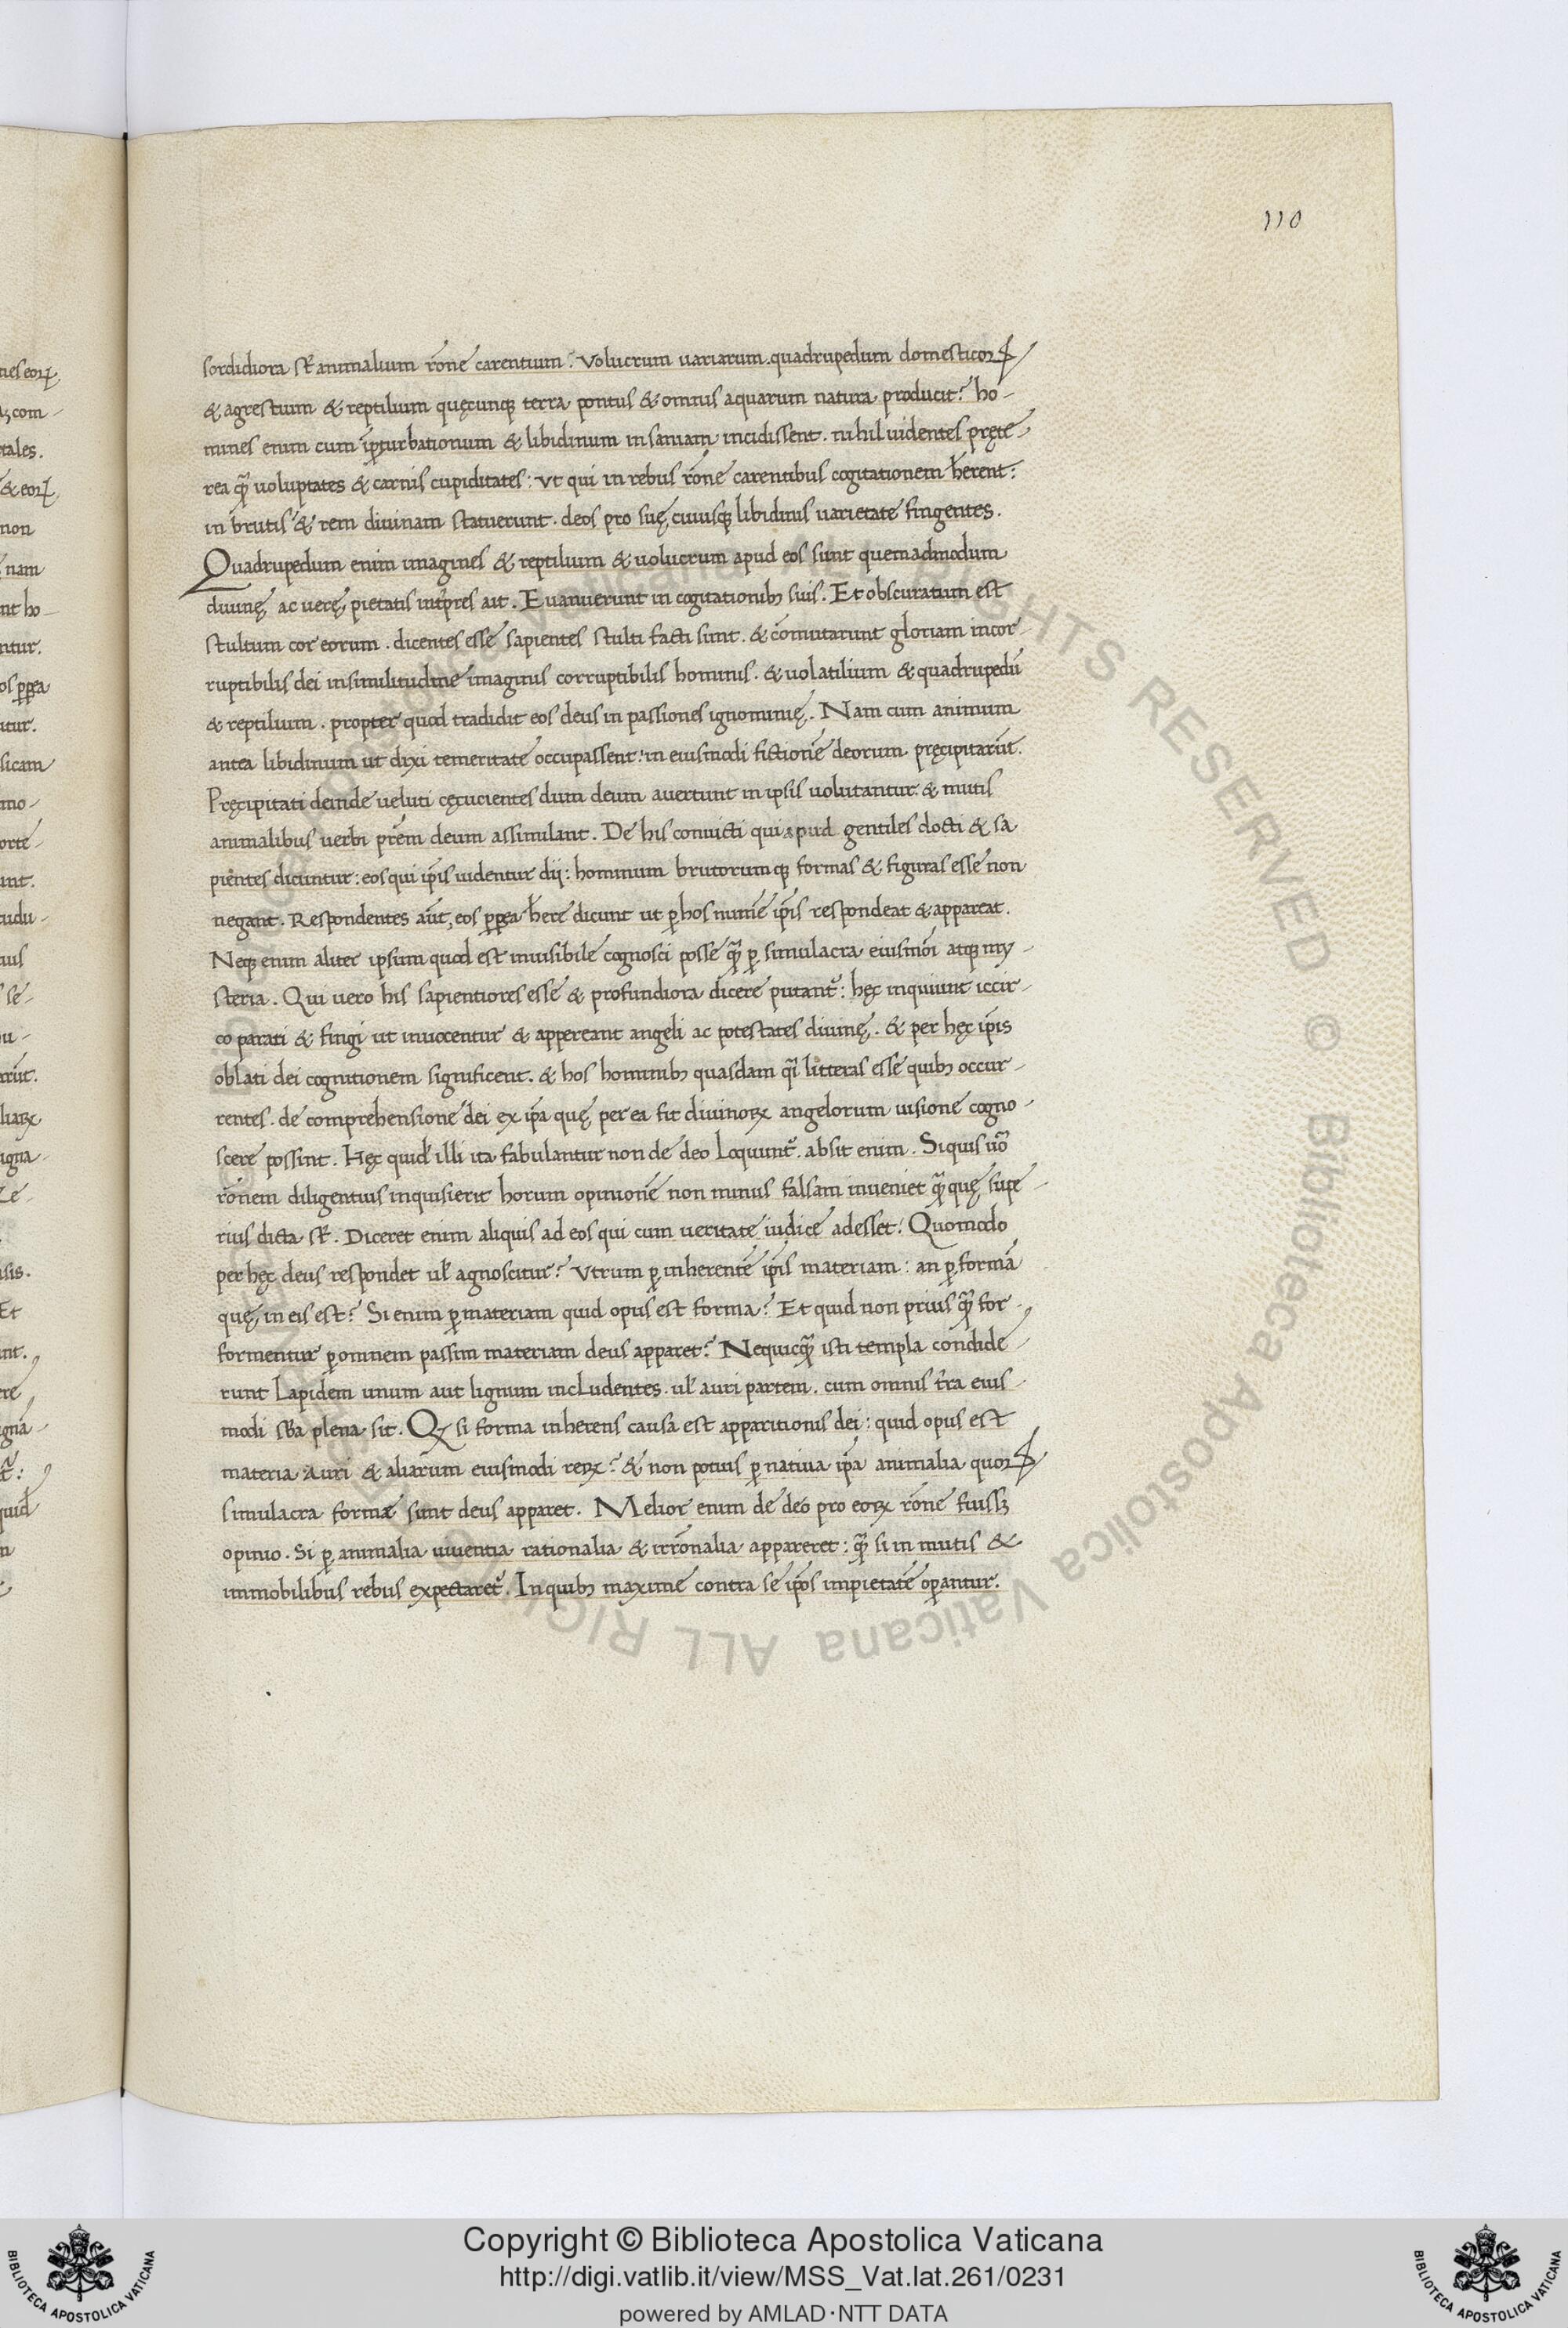 110
sordidiora st̄ animalium rōne carentium? Volucrum uariarum. quadrupedum domesticoꝝ
& agrestium & reptilium quęcunqꝫ terra pontus & omnis aquarum natura producit? ho-
mines enim cum ip̄turbationum & libidinum insaniam incidissent. nihil uidentes pręte-
rea qᷓ uoluptates & carnis cupiditates: Vt qui in rebus rōne carentibus cogitationem h̄erent:
in brutis & rem diuinam statuerunt. deos pro suę cuiusqꝫ libidinis uarietate fingentes.
Quadrupedum enim imagines & reptilium & uolucrum apud eos sunt quemadmodum
diuinę ac uerę pietatis int̄pres ait. Euanuerunt in cogitationibꝫ suis. Et obscuratum est
stultum cor eorum. dicentes esse sapientes stulti facti sunt. & cōmutarunt gloriam incor-
ruptibilis dei in similitudine imaginis corruptibilis hominis. & uolatilium & quadrupedū
& reptilium. propter quod tradidit eos deus in passiones ignominię. Nam cum animum
antea libidinum ut dixi temeritate occupassent: in eiusmodi fictionē deorum pręcipitarūt.
Pręcipitati deinde ueluti cęcucientes dum deum auertunt in ipsis uolutantur. & mutis
animalibus uerbi pr̄em deum assimilant. De his conuicti qui apud gentiles docti & sa
pientes dicuntur: eos qui ip̄is uidentur dii: hominum brutorumqꝫ formas & figuras esse non
negant. Respondentes aūt, eos ꝓꝑea h̄ere dicunt ut ꝑ hos numē ip̄is respondeat & appareat.
Neqꝫ enim aliter ipsum quod est inuisibile cognosci posse qᷓ ꝑ simulacra eiusmōi atqꝫ my-
steria. Qui uero his sapientiores esse & profundiora dicere putantᷣ: hęc inquiunt iccir-
co parati & fingi ut inuocentur & appereant angeli ac potestates diuinę. & per hęc ip̄is
oblati dei cognitionem significent. & hos hominibꝫ quasdam qᷓi litteras esse quibꝫ occur-
rentes. de comprehensione dei ex ip̄a quę per ea fit diuinoꝝ angelorum uisione cogno-
scere possint. Hęc quid' illi ita fabulantur non de deo loquuntᷣ. absit enim. Siquis uo᷒
rōnem diligentius inquisierit horum opinionē non minus falsam inueniet qᷓ quę supe-
rius dicta st̄. Diceret enim aliquis ad eos qui cum ueritate iudice adesset: Quomodo
per hęc deus respondet ul' agnoscitur? Vtrum ꝑ inherentē ip̄is materiam: an ꝑ formā
quę in eis est? Si enim ꝑ materiam quid opus est forma? Et quid non prius qᷓ for-
formentur ꝑ omnem passim materiam deus apparet? Nequicqᷓ isti templa condide-
runt Lapidem unum aut lignum includentes. ul' auri partem. cum omnis t̄ra eius-
modi sb̄a plena sit. Qꝫ si forma inherens causa est apparitionis dei: quid opus est
materia auri & aliarum eiusmodi reꝝ? & non potius ꝑ natiua ip̄a animalia quoꝝ
simulacra formæ sunt deus apparet. Melior enim de deo pro eoꝝ rōne fuissꝫ
opinio. Si ꝑ animalia uiuentia rationalia & irrōnalia appareret: qᷓ si in mutis &
immobilibus rebus expectaretᷣ. In quibꝫ maxime contra se ip̄os impietatē oꝑantur.
Copyright © Biblioteca Apostolica Vaticana
http://digi.vatlib.it/view/MSS_Vat.lat.261/0231
powered by AMLAD·NTT DATA